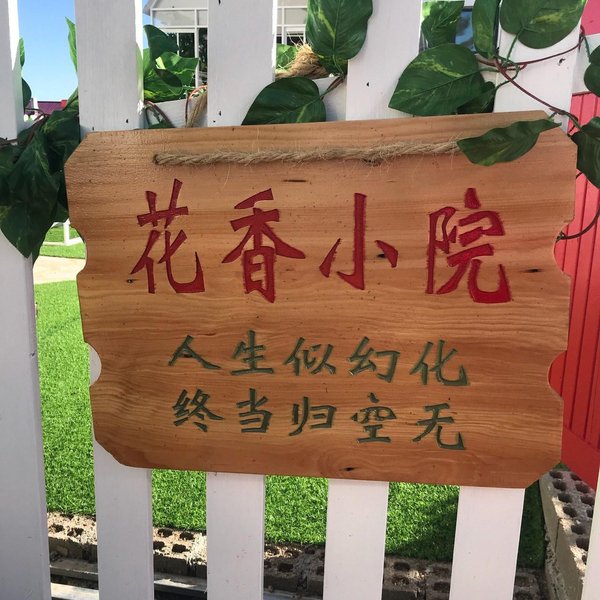 花香小院
人生似幻化
终当归空无